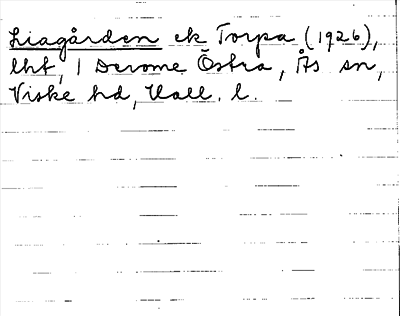 Liagården ek Torpa (1926),
lht, 1 Derome Östra, Ås sn,
Viske hd, Hall. l.